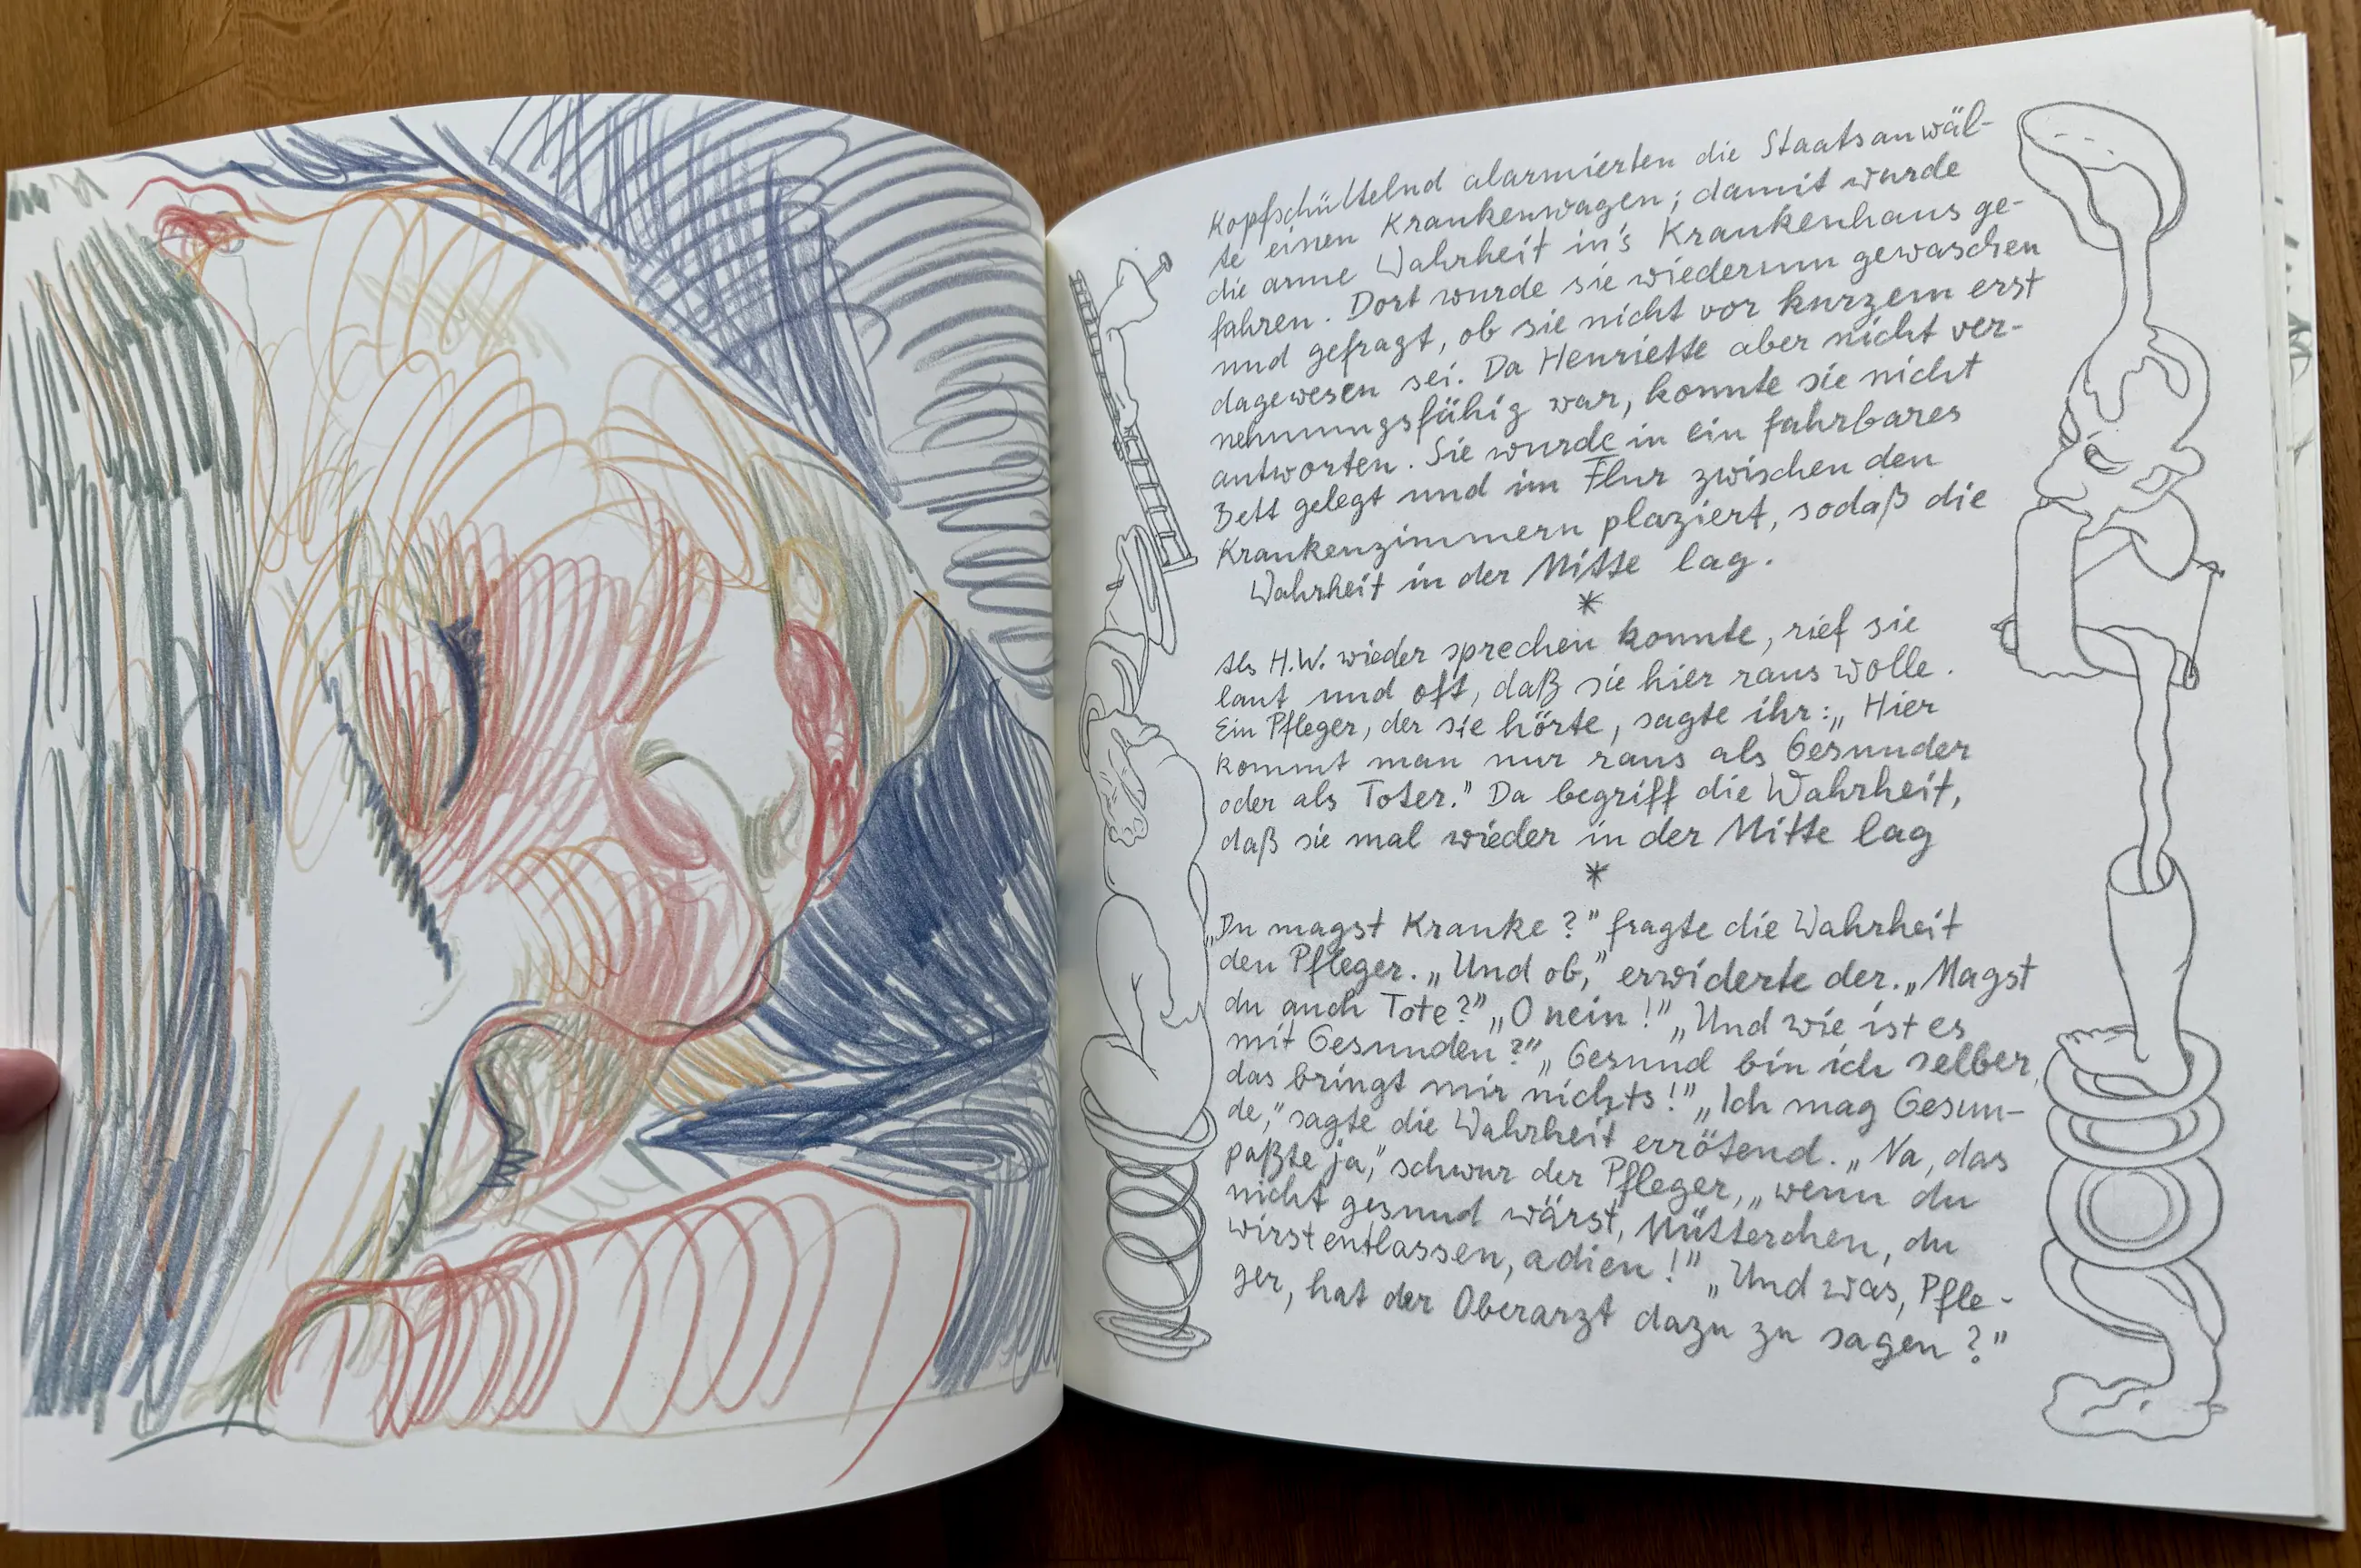 Kopfschüttelnd alarmierten die Staatsanwäl-
te einen Krankenwagen; damit wurde
die arme Wahrheit in's Krankenhaus ge-
fahren. Dort wurde sie wiederum gewaschen
und gefragt, ob sie nicht vor kurzem erst
dagewesen sei. Da Henriette aber nicht ver-
nehmungsfähig war, konnte sie nicht
antworten. Sie wurde in ein fahrbares
Bett gelegt und im Flur zwischen den
Krankenzimmern plaziert, sodaß die
Wahrheit in der Mitte lag.
*
Als H.W. wieder sprechen konnte, rief sie
laut und oft, daß sie hier raus wolle.
Ein Pfleger, der sie hörte, sagte ihr: „Hier
kommt man nur raus als Gesunder
oder als Toter." Da begriff die Wahrheit,
daß sie mal wieder in der Mitte lag
*
„Du magst Kranke?" fragte die Wahrheit
den Pfleger. „Und ob," erwiderte der. „Magst
du auch Tote?" „O nein!" „Und wie ist es
mit Gesunden?" „Gesund bin ich selber,
das bringt mir nichts!" „Ich mag Gesun-
de," sagte die Wahrheit errötend. „Na, das
paßte ja," schwur der Pfleger, „wenn du
nicht gesund wärst, Mütterchen, du
wirst entlassen, adieu!" „Und was, Pfle-
ger, hat der Oberarzt dazu zu sagen?"